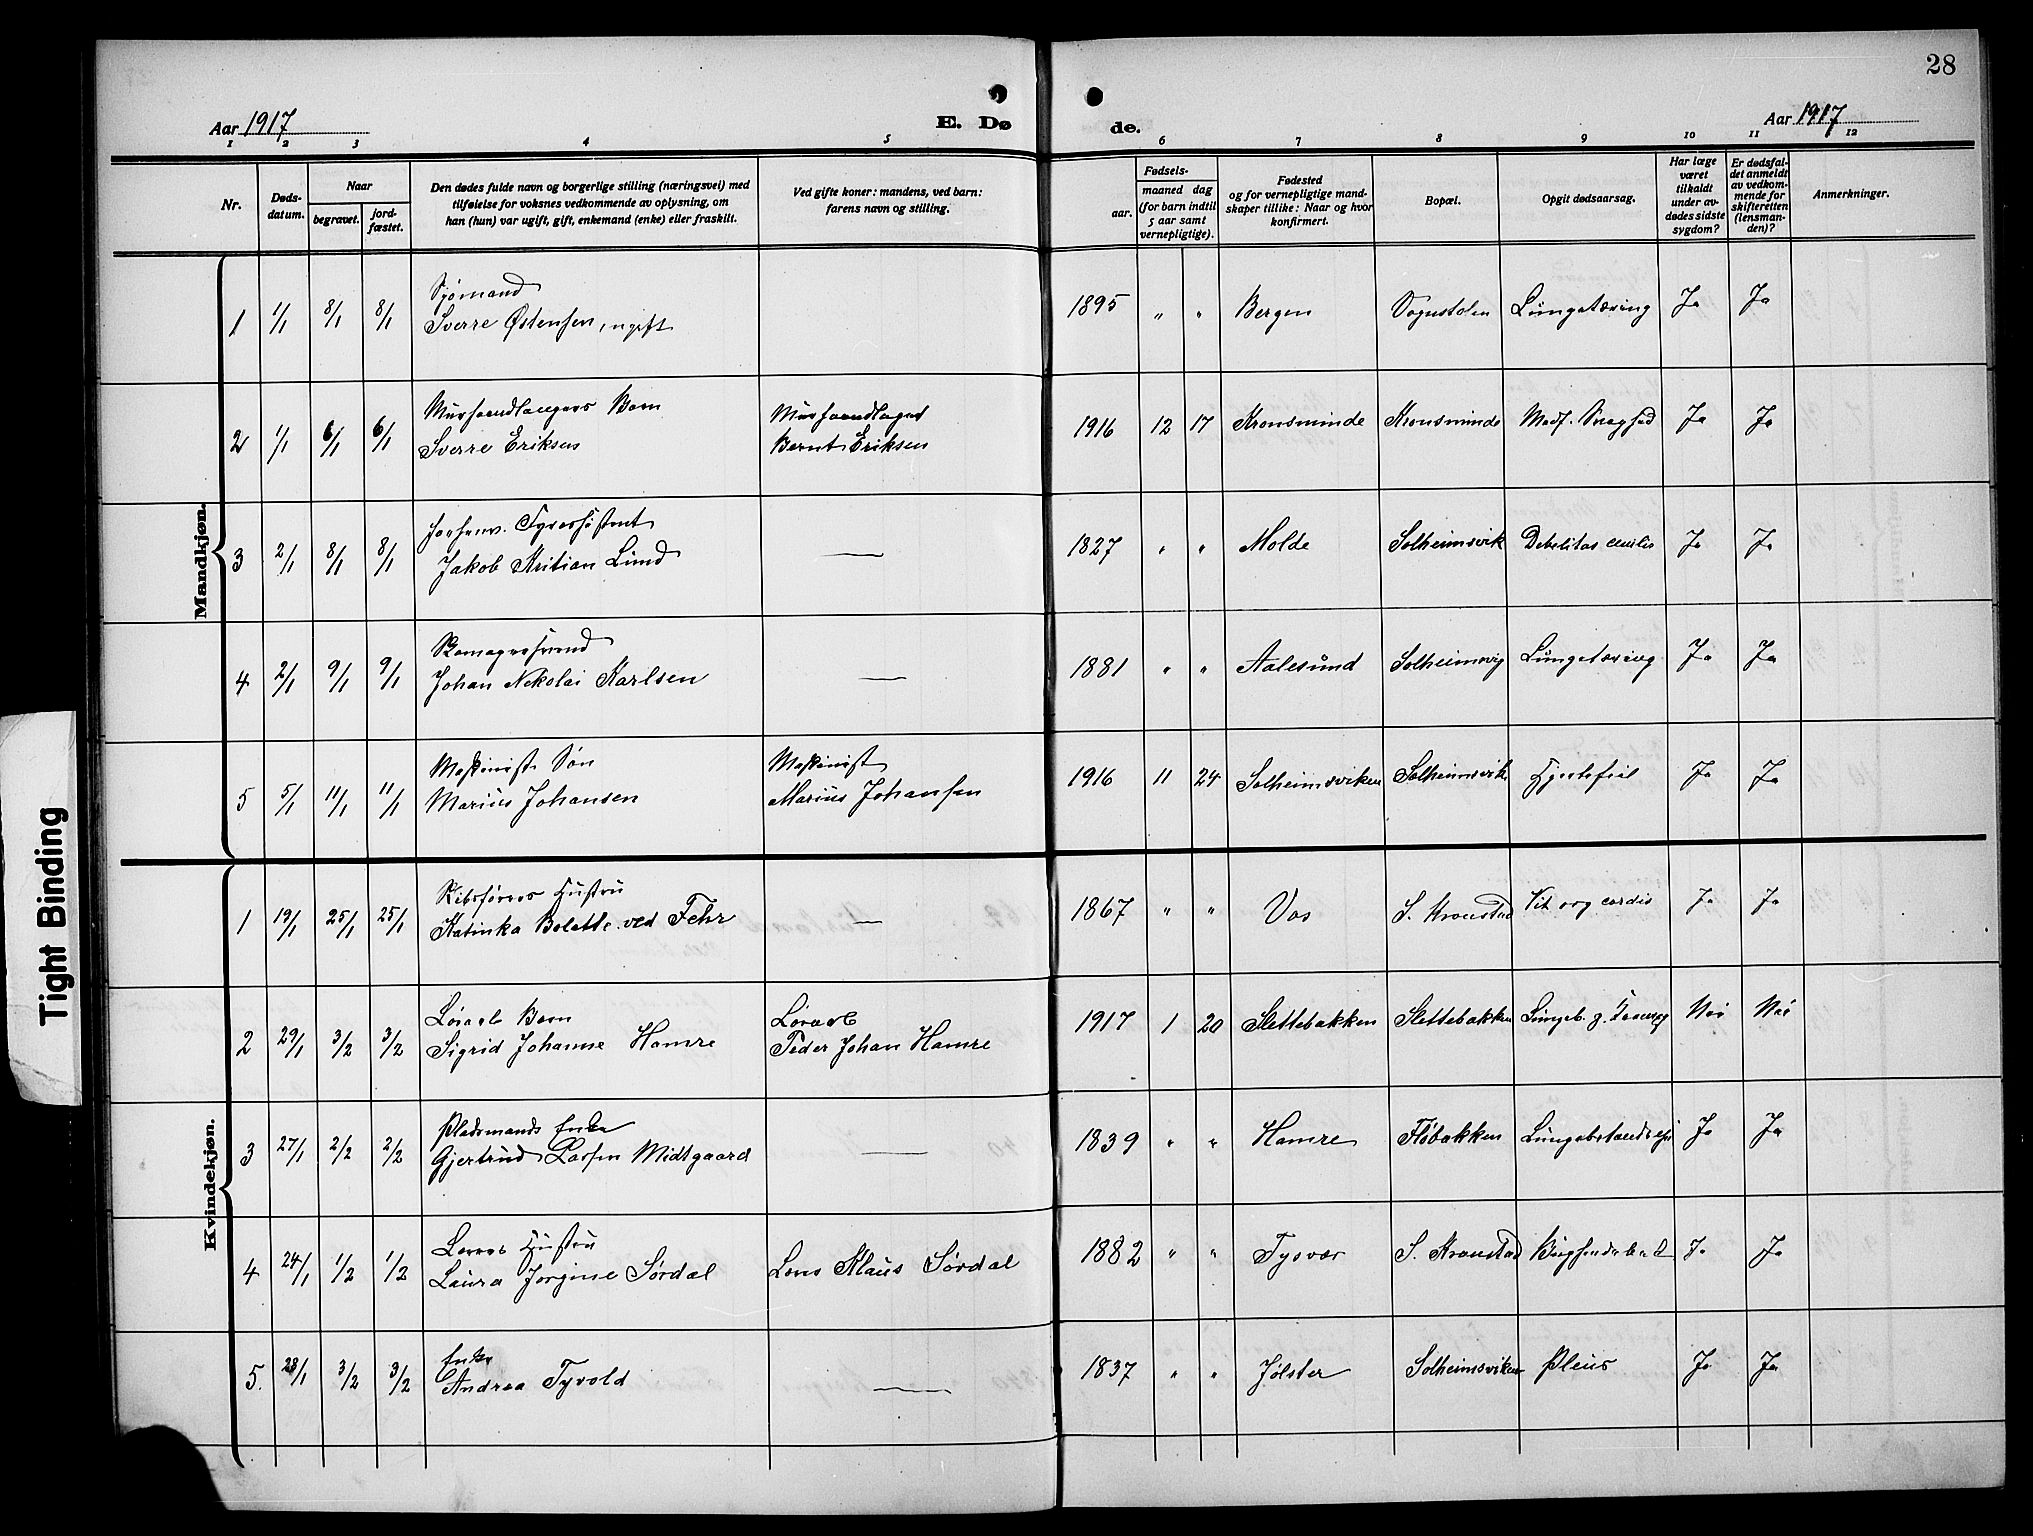 28
Aar 1917
E. Dø
de.
Aar 1917
1 2 3 4 5 6 7 8 9 10 11 12
Nr.
Døds-
datum.
Naar
begravet.
jord-
fæstet.
Den dødes fulde navn og borgerlige stilling (næringsvei) med
tilføielse for voksnes vedkommende av oplysning, om
han (hun) var ugift, gift, enkemand (enke) eller fraskilt.
Ved gifte koner: mandens, ved barn:
farens navn og stilling.
Fødsels-
aar.
maaned dag
(for barn indtil
5 aar samt
vernepligtige).
Fødested
og for vernepligtige mand-
skaper tillike: Naar og hvor
konfirmert.
Bopæl.
Opgit dødsaarsag.
Har læge
været
tilkaldt
under av-
dødes sidste
sygdom?
Er dødsfal-
det anmeldt
av vedkom-
mende for
skifteretten
(lensman-
den)?
Anmerkninger.
Mandkjøn.
Sjømand
1 1/1 8/1 8/1 Sverre Østensen, ugift 1895 " " Bergen Lungetæring Ja Ja
Murhaandlangers Barn Murhaandlanger
2 1/1 6/1 6/1 Sverre Eriksen Bernt Eriksen 1916 12 17 Kronsminde Kronsminde Medf. Svaghed Ja Ja
3 2/1 8/1 8/1 Jakob Kritian Lund — 1827 " " Molde Solheimsvik Debilitas Ja Ja
4 2/1 9/1 9/1 Johan Nikolai Karlsen — 1881 " " Aalesund Solheimsvig Lungetæring Ja Ja
Maskinist Søn Maskinist
5 5/1 11/1 11/1 Marius Johansen Marius Johansen 1916 11 24 Solheimsviken Solheimsvik Hjertefeil Ja Ja
Kvindekjøn.
Hustru
1 19/1 25/1 25/1 Katinka Bolette ved Fehr — 1867 " " Vos S. Kronstad Vit org cordis Ja Ja
Løsarb Barn Løsarb
2 29/1 3/2 3/2 Sigrid Johanne Hamre Peder Johan Hamre 1917 1 20 Slettebakken Slettebakken Nei Nei
Pladsmands Enke
3 27/1 2/2 2/2 Gjertrud Larsen Midtgaard — 1839 " " Hamre Fløbakken Ja Ja
Hustru
4 24/1 1/2 1/2 Laura Jorgine Sørdal Klaus Sørdal 1882 " " Tysvær S. Kronstad Ja Ja
Enke
5. 28/1 3/2 3/2 Andrea Tyvold — 1837 " " Jølster Solheimsviken Ja Ja
Tight Binding